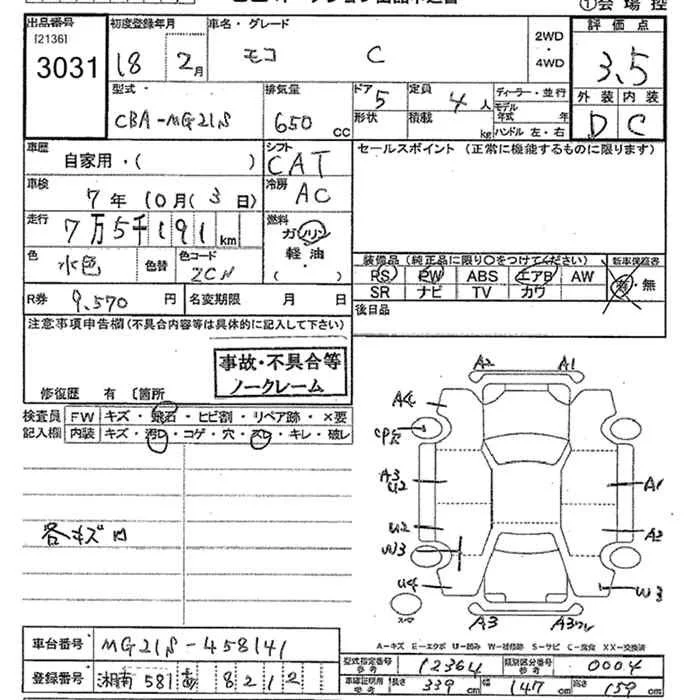 ①会場控
出品番号 初度登録年月 車名・グレード 評価点
[2136] 3031 18 2月 モコ C 2WD ・ 4WD 3.5
型式 排気量 ドア 5 定員 4人 ディーラー・並行 外装 内装
CBA-MG21S 650 CC 形状 積載 kg モデル年式 年 ハンドル 左・右 D C
車歴 シフト セールスポイント (正常に機能するものに限ります)
自家用・( ) CAT
車検 冷房
7年 10月 (3日) AC
走行 燃料
7万5千191km ガソリン
色 色替 色コード 軽油 装備品 (純正品に限り○をつけてください) 新車保証書
水色 ( ) PS PW ABS エアB AW 有・無
R券 9,570円 名変期限 月 日 SR ナビ TV カワ
後日品
注意事項申告欄 (不具合内容等は具体的に記入して下さい)
事故・不具合等
ノークレーム
修復歴 有 〔箇所
検査員 FW キズ・飛石・ヒビ割・リペア跡・×要
記入欄 内装 キズ・汚レ・コゲ・穴・スレ・キレ・破レ
A2 A1
A4
A3
U2 A1
U2 A2
W3
U4 W3
A3
A-キズ E-エクボ U-凹み W-補修跡 S-サビ C-腐食 XX-交換済
車台番号 MG21S-458141
型式指定番号 参考 12364 類別区分番号 参考 0004
登録番号 湘南 581 8212
車庫証明用 参考 長さ 339cm 幅 147cm 高さ 159cm